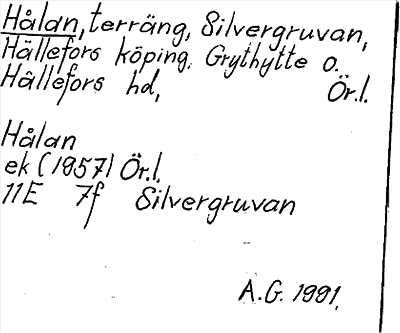 Hålan, terräng, Silvergruvan,
Hällefors köping. Grythytte o.
Hällefors hd, Ör.l.
Hålan
ek (1957) Ör.l.
11E 7f Silvergruvan
A.G. 1991.